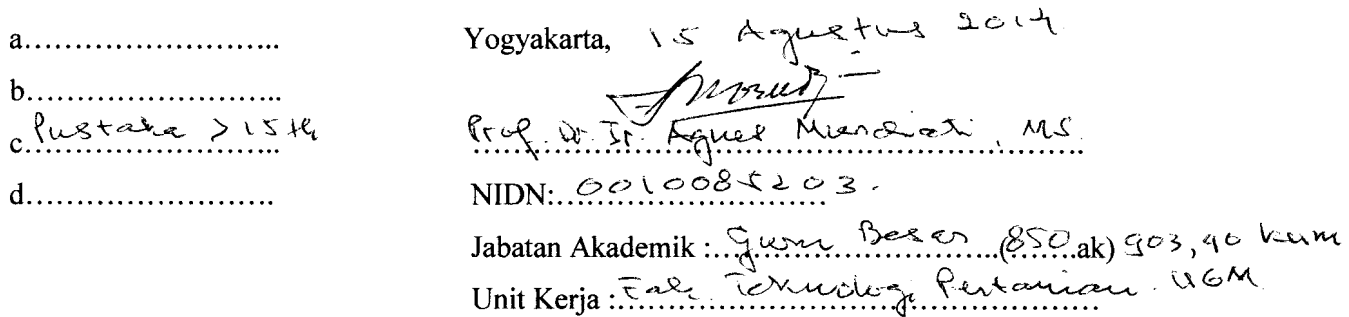 a..........................
b..........................
c Pustaka > 15 th
d..........................
Yogyakarta, 15 Agustus 2014
Prof. Dr. Ir. Agnes Murdiati, MS.
NIDN: 0010085203.
Jabatan Akademik : Guru Besar (850 ak) 903,90 kum
Unit Kerja : Fak. Teknologi Pertanian UGM